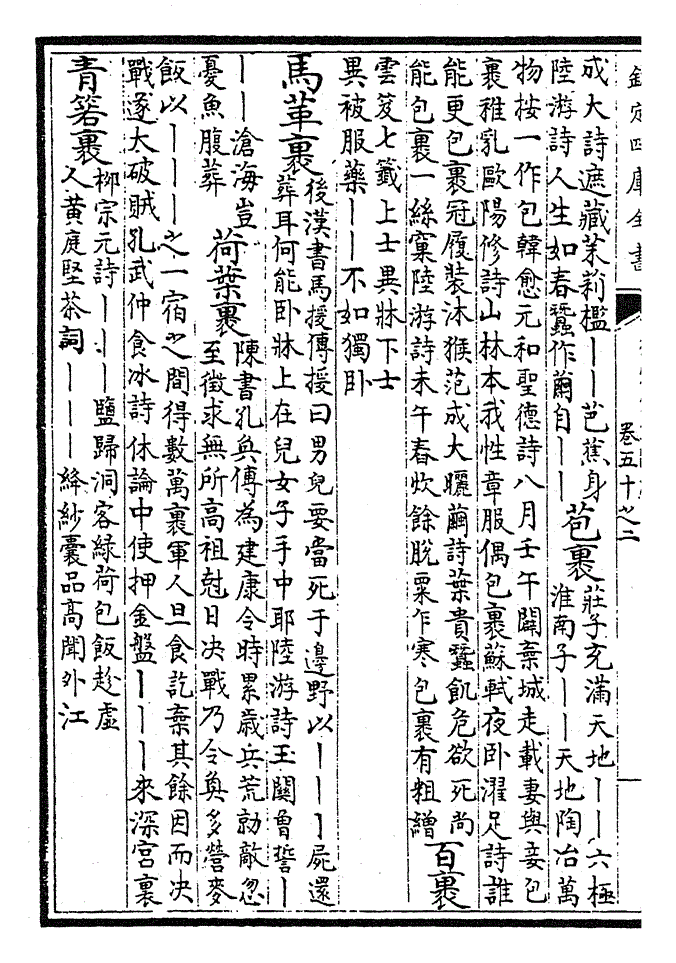 欽定四庫全書
卷五十之二
成大詩遮藏茉莉檻丨丨芭蕉身
陸游詩人生如春蠶作繭自丨丨
苞裹
莊子充滿天地丨丨六極
淮南子丨丨天地陶冶萬
物按一作包韓愈元和聖德詩八月壬午闢棄城走載妻與妾包
裹稚乳歐陽修詩山林本我性章服偶包裹蘇軾夜卧濯足詩誰
能更包裹冠履裝沐猴范成大曬繭詩葉貴蠶飢危欲死尚
能包裹一絲窠陸游詩未午春炊餘脫粟乍寒包裹有粗繒
百裹
雲笈七籤上士異牀下士
異被服藥丨丨不如獨卧
馬革裹
後漢書馬援傳援曰男兒要當死于邊野以丨丨丨屍還
葬耳何能卧牀上在兒女子手中耶陸游詩玉關曾誓丨
丨丨滄海豈
憂魚腹葬
荷葉裹
陳書孔奐傳為建康令時累歲兵荒勍敵忽
至徵求無所高祖尅日决戰乃令奐多營麥
飯以丨丨丨之一宿之間得數萬裹軍人旦食訖棄其餘因而决
戰遂大破賊孔武仲食冰詩休論中使押金盤丨丨丨來深宮裏
青箬裹
柳宗元詩丨丨丨鹽歸洞客綠荷包飯趁虛
人黄庭堅茶詞丨丨丨絳紗囊品高聞外江